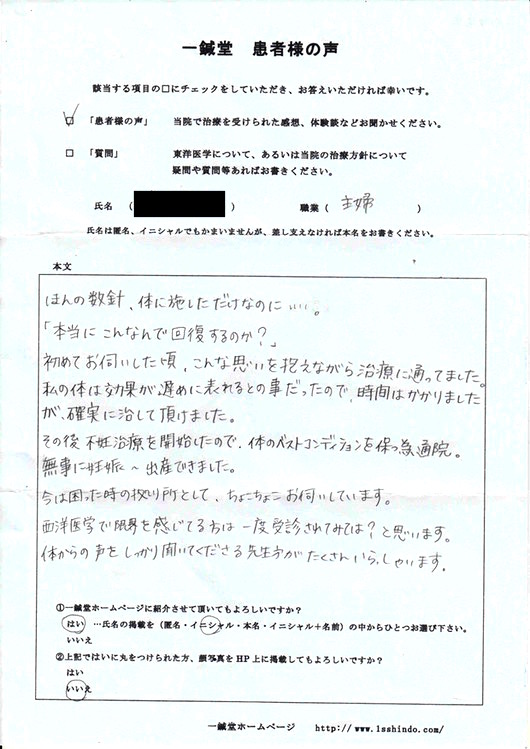 一鍼堂 患者様の声
該当する項目の□にチェックをしていただき、お答えいただければ幸いです。
☑ 「患者様の声」 当院で治療を受けられた感想、体験談などお聞かせください。
□ 「質問」 東洋医学について、あるいは当院の治療方針について
疑問や質問等あればお書きください。
氏名 ( ) 職業 ( 主婦 )
氏名は匿名、イニシャルでもかまいませんが、差し支えなければ本名をお書きください。
本文
ほんの数針、体に施しただけなのに…。
「本当にこんなんで回復するのか?」
初めてお伺いした頃、こんな思いを抱えながら治療に通ってました。
私の体は効果が遅めに表れるとの事だったので、時間はかかりました
が、確実に治して頂けました。
その後不妊治療を開始したので、体のベストコンディションを保つ為通院。
無事に妊娠〜出産できました。
今は困った時の拠り所として、ちょこちょこお伺いしています。
西洋医学で限界を感じてる方は一度受診されてみては?と思います。
体からの声をしっかり聞いてくださる先生方がたくさんいらっしゃいます。
①一鍼堂ホームページに紹介させて頂いてもよろしいですか?
はい …氏名の掲載を(匿名・イニシャル・本名・イニシャル+名前)の中からひとつお選び下さい。
いいえ
②上記ではいに丸をつけられた方、顔写真をHP上に掲載してもよろしいですか?
はい
いいえ
一鍼堂ホームページ http://www.1sshindo.com/